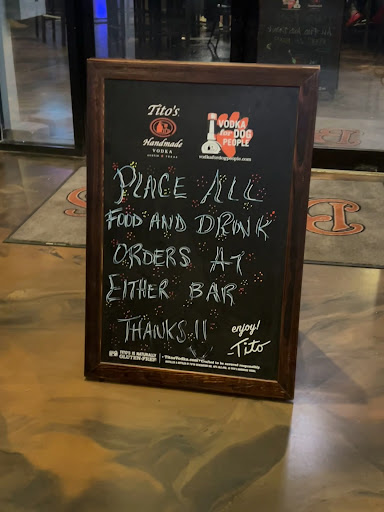 Tito's
Handmade
VODKA
AUSTIN ★ TEXAS
VODKA
for DOG
PEOPLE
vodkafordogpeople.com
PLACE ALL
FOOD AND DRINK
ORDERS AT
EITHER BAR
THANKS!!
enjoy!
-Tito
TITO'S IS NATURALLY
GLUTEN-FREE!